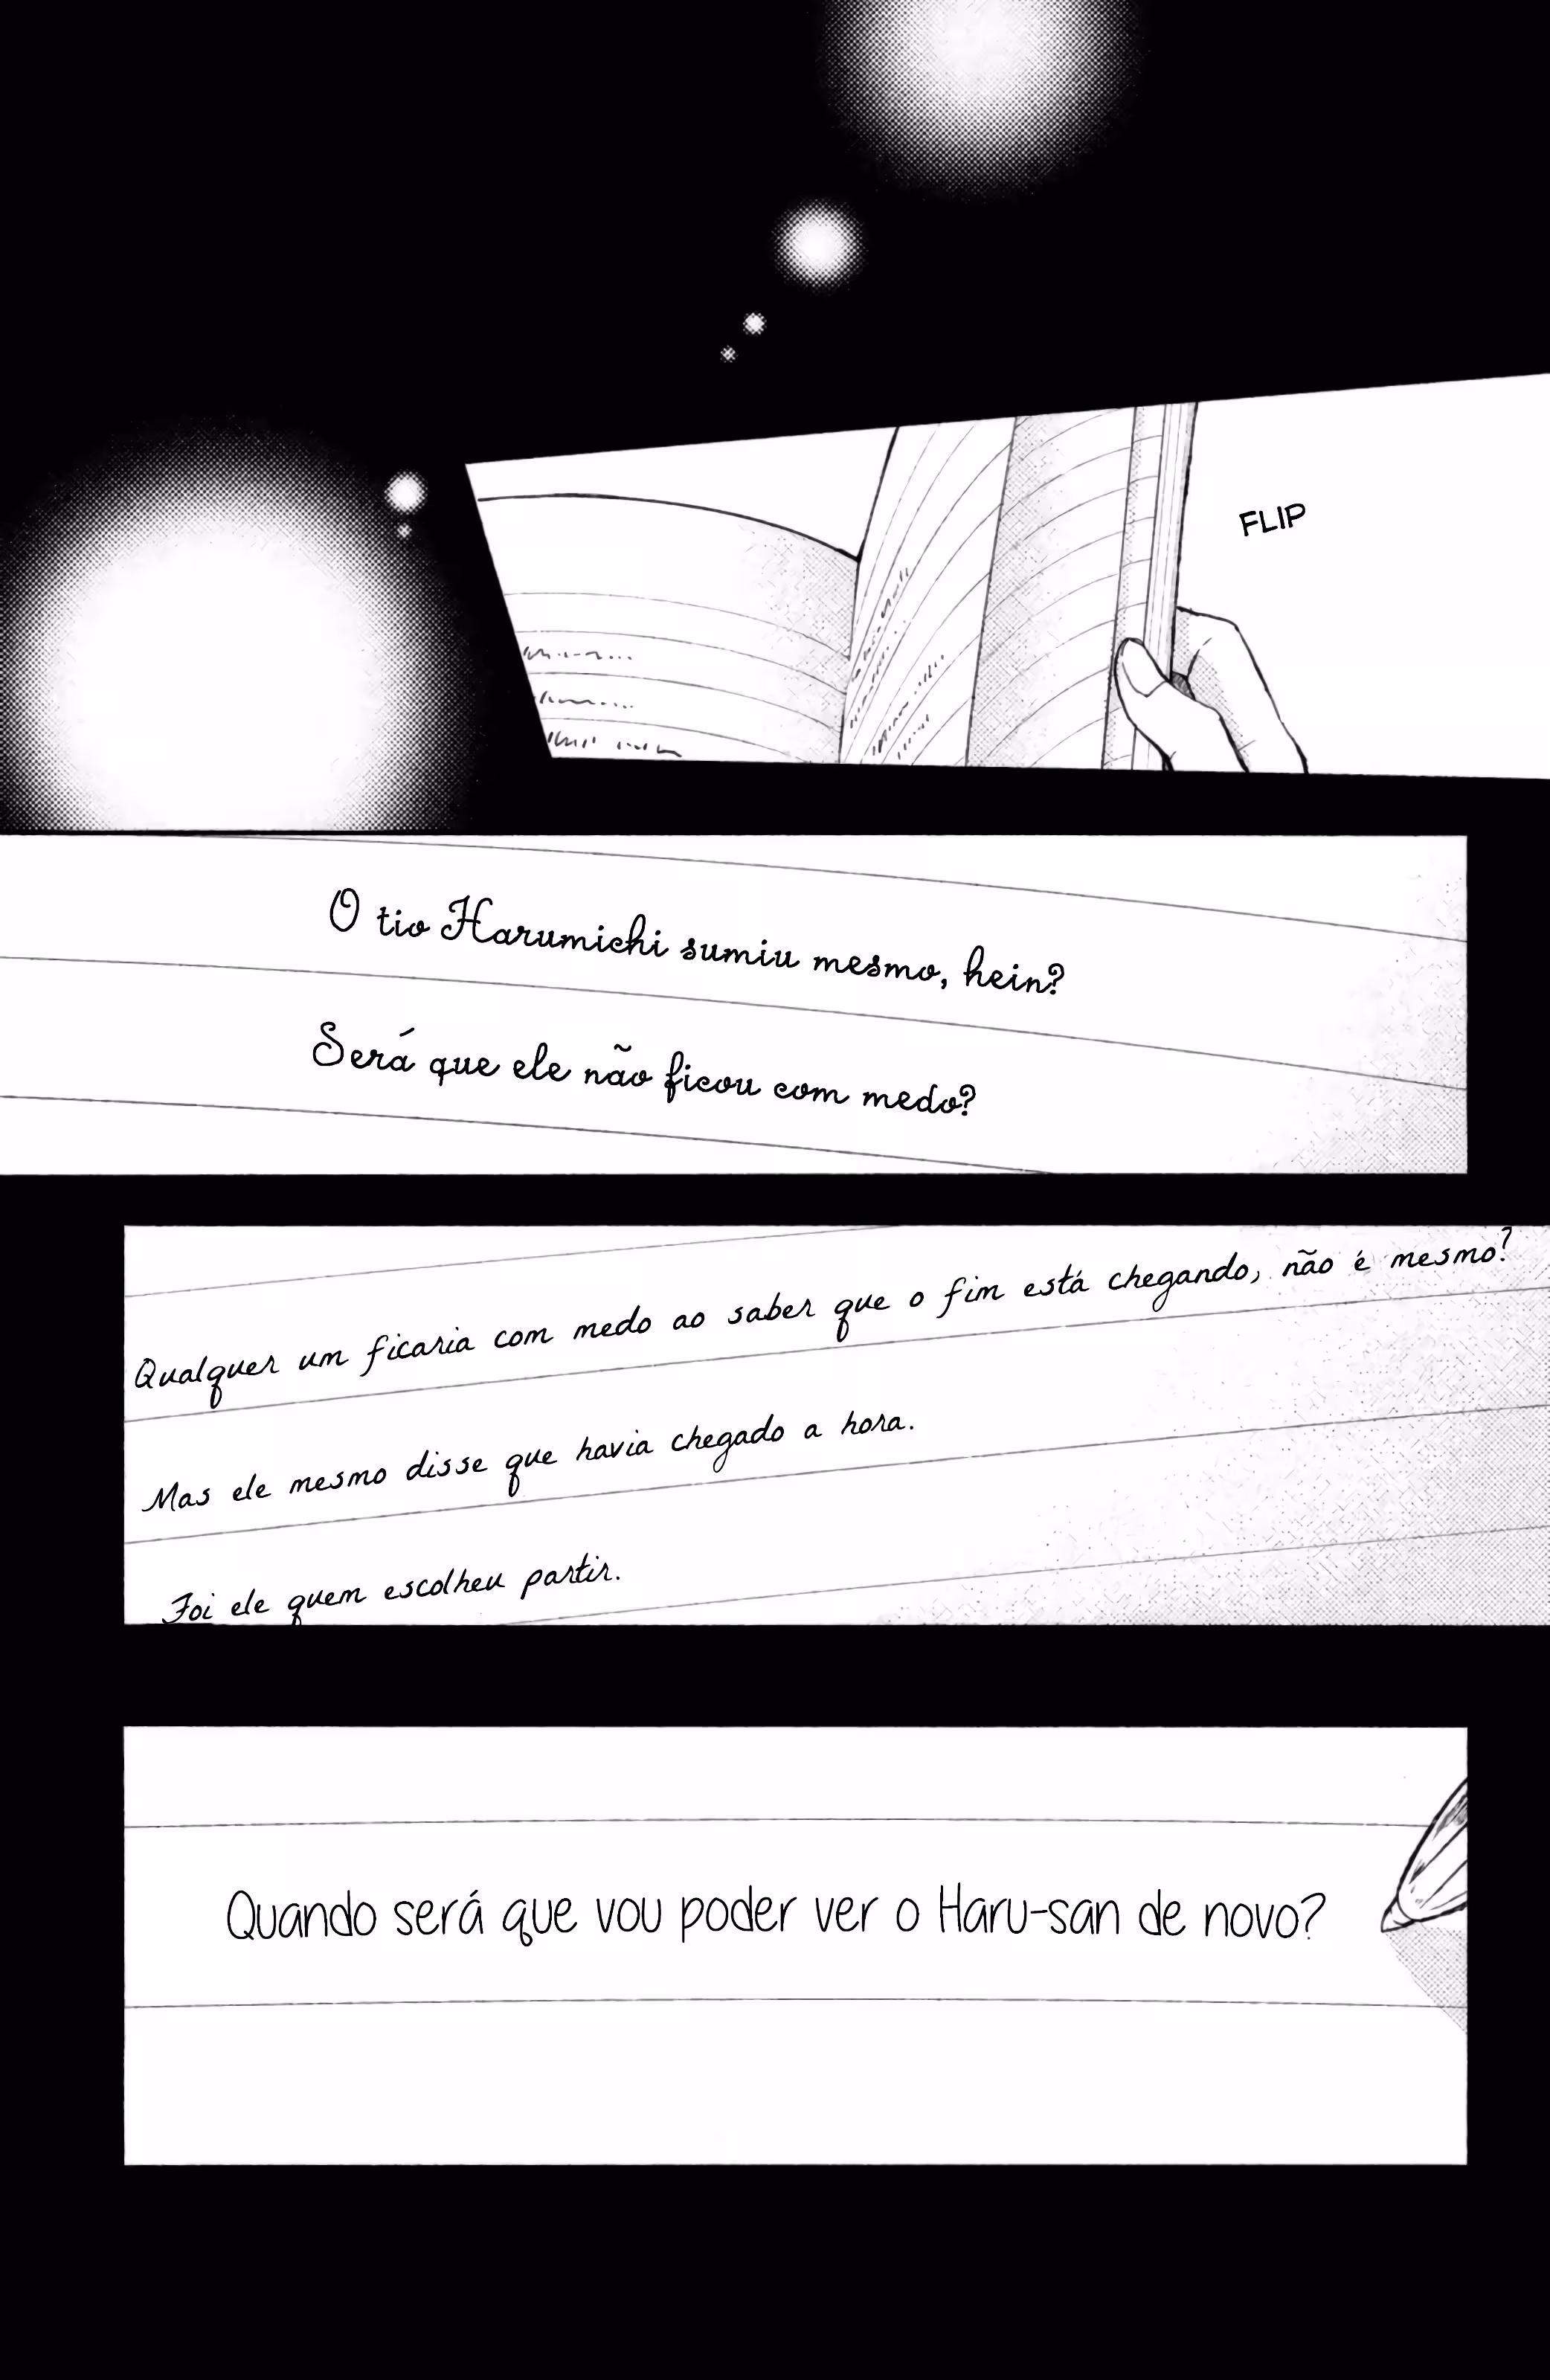 FLIP
O tio Harumichi sumiu mesmo, hein?
Será que ele não ficou com medo?
Qualquer um ficaria com medo ao saber que o fim está chegando, não é mesmo?
Mas ele mesmo disse que havia chegado a hora.
Foi ele quem escolheu partir.
Quando será que vou poder ver o Haru-san de novo?